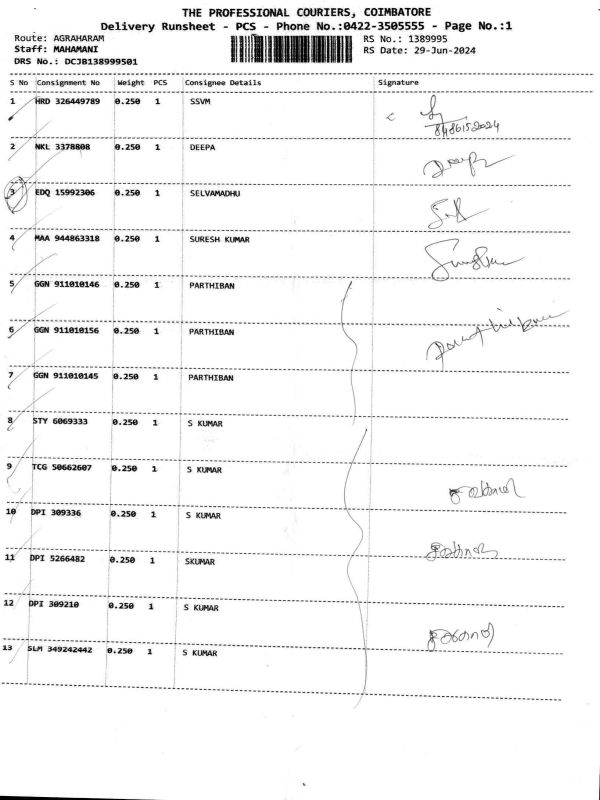 THE PROFESSIONAL COURIERS, COIMBATORE
Delivery Runsheet - PCS - Phone No.:0422-3505555 - Page No.:1
Route: AGRAHARAM RS No.: 1389995
Staff: MAHAMANI RS Date: 29-Jun-2024
DRS No.: DCJB138999501
S No Consignment No Weight PCS Consignee Details Signature
1 HRD 326449789 0.250 1 SSVM
2 NKL 3378808 0.250 1 DEEPA
3 EDQ 15992306 0.250 1 SELVAMADHU
4 MAA 944863318 0.250 1 SURESH KUMAR
5 GGN 911010146 0.250 1 PARTHIBAN
6 GGN 911010156 0.250 1 PARTHIBAN
7 GGN 911010145 0.250 1 PARTHIBAN
8 STY 6069333 0.250 1 S KUMAR
9 TCG 50662607 0.250 1 S KUMAR
10 DPI 309336 0.250 1 S KUMAR
11 DPI 5266482 0.250 1 SKUMAR
12 DPI 309210 0.250 1 S KUMAR
13 SLM 349242442 0.250 1 S KUMAR